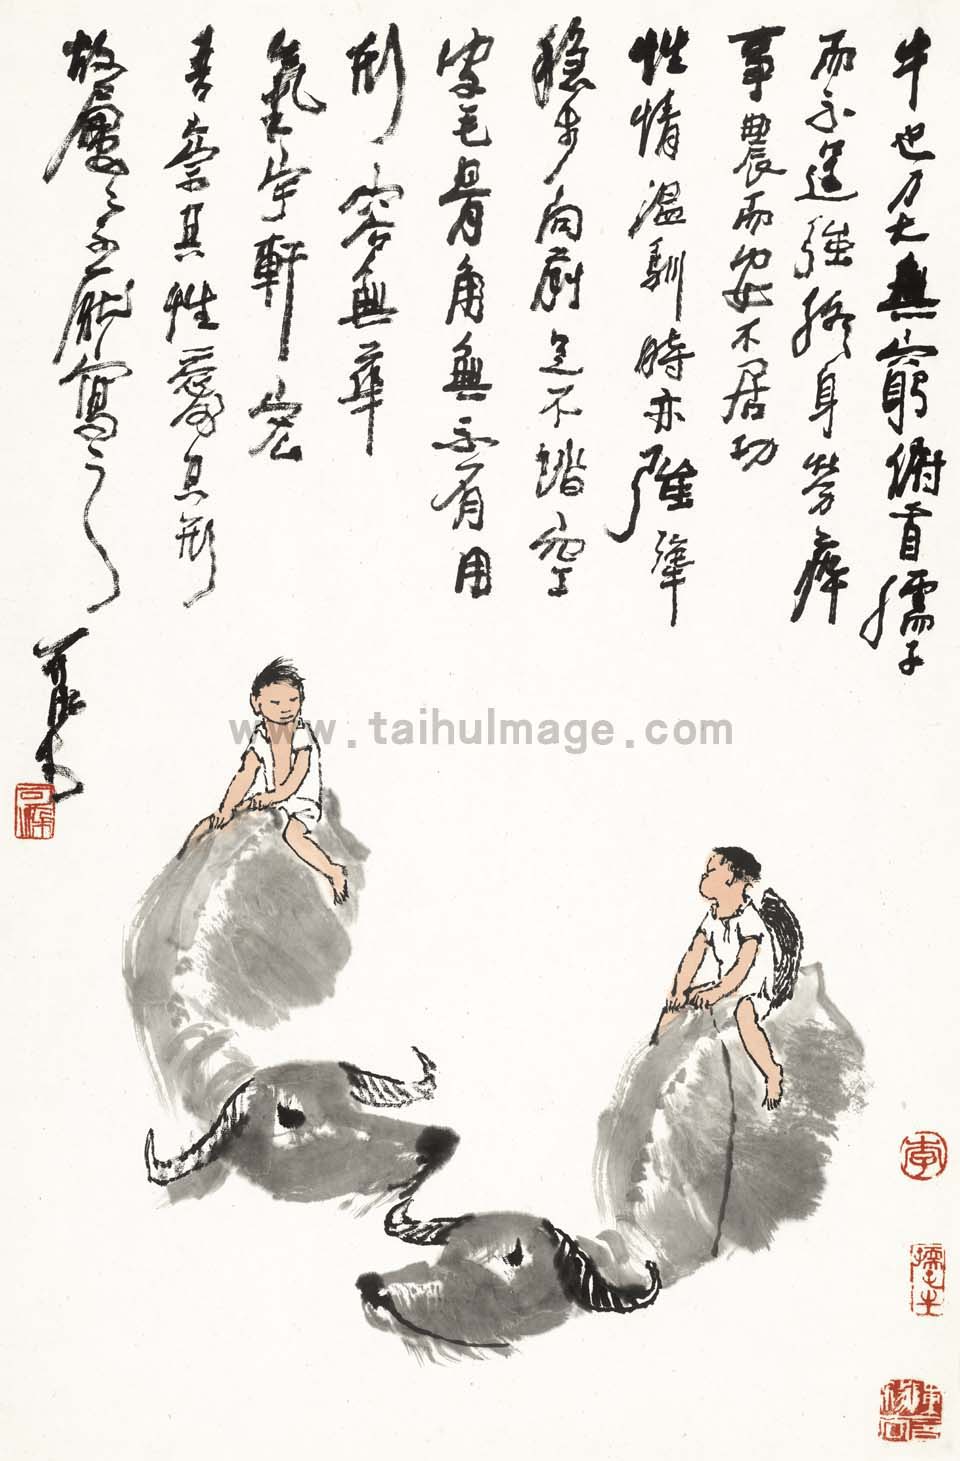 牛也力大無窮俯首孺子
而不逞強終身勞瘁
事農而安不居功
性情溫馴時亦強犟
穩步向前足不踏空
皮毛骨角無不有用
形容無華
氣宇軒宏
吾崇其性愛其形
故屢屢不厭寫之
可染
www.taihuImage.com
可染
李
孺子牛